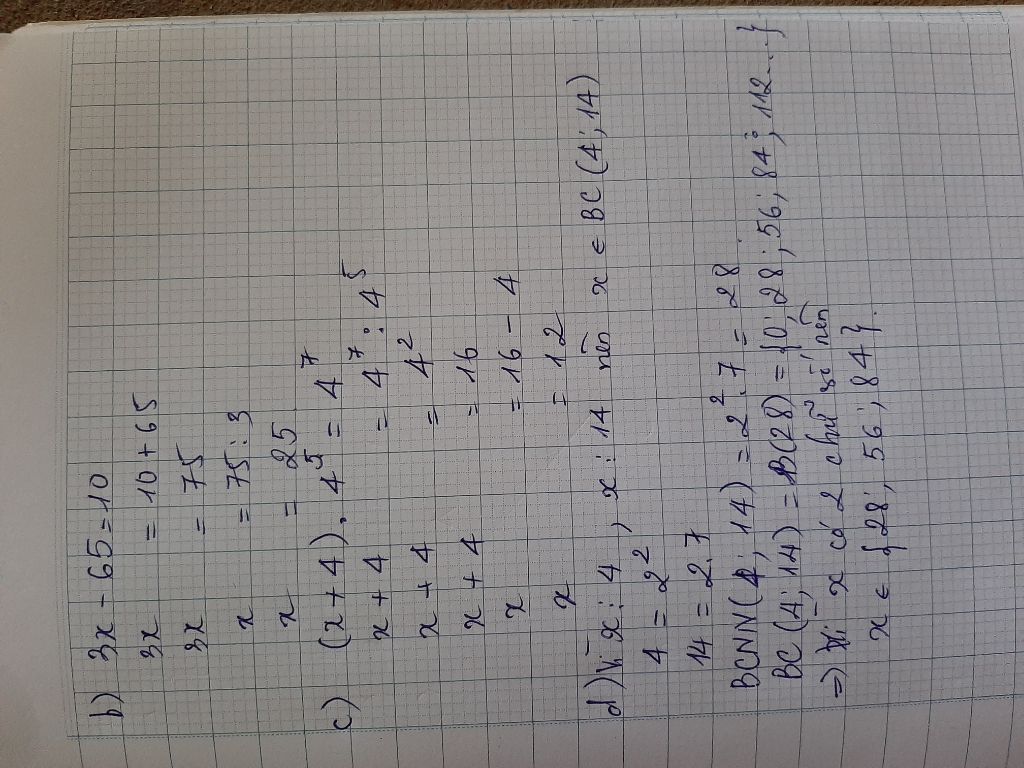 b) 3x - 65 = 10
3x = 10 + 65
3x = 75
x = 75 : 3
x = 25
c) (x + 4) . 4⁵ = 4⁷
x + 4 = 4⁷ : 4⁵
x + 4 = 4²
x + 4 = 16
x = 16 - 4
x = 12
d) Vì x ⋮ 4 , x ⋮ 14 nên x ∈ BC (4 ; 14)
4 = 2²
14 = 2.7
BCNN (4 ; 14) = 2² . 7 = 28
BC (4 ; 14) = B(28) = {0 ; 28 ; 56 ; 84 ; 112...}
=> Vì x có 2 chữ số nên
x ∈ {28 ; 56 ; 84}.